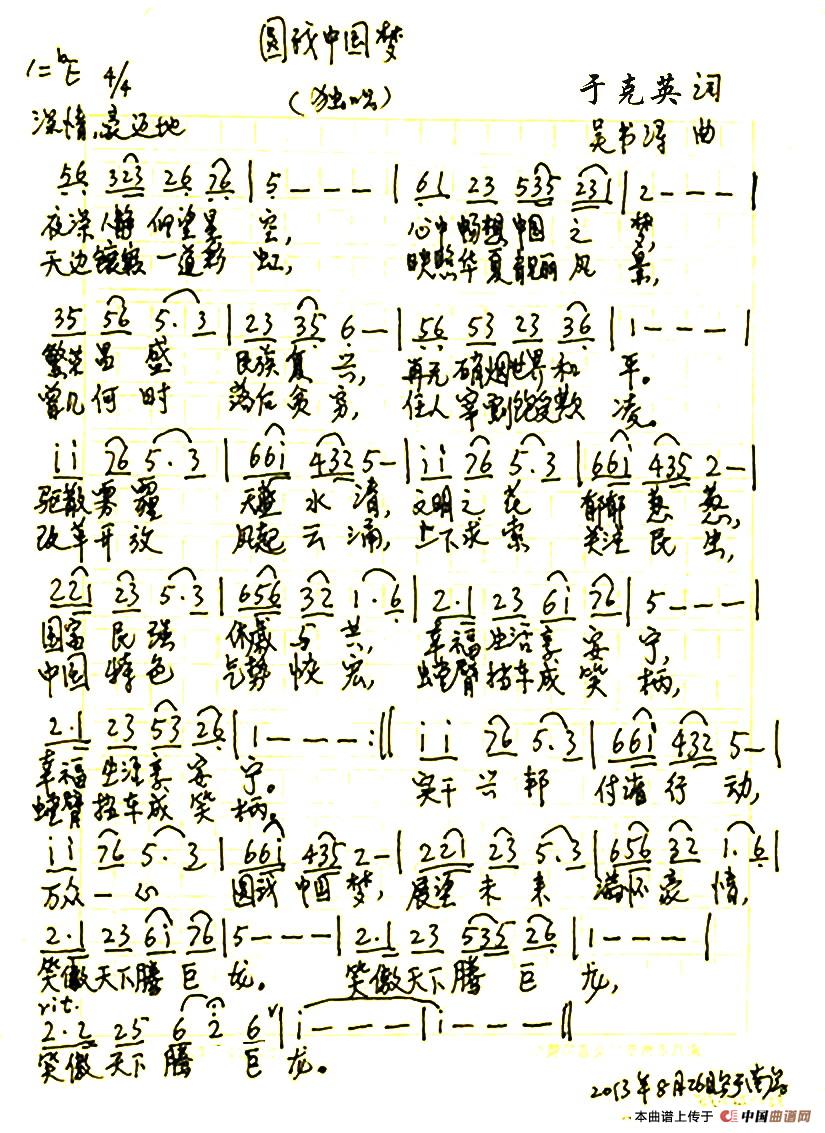 圆我中国梦
1=ᵇE 4/4
(独唱)
于克英 词
深情、豪迈地
曲
56 323 26 76 | 5 - - - | 61 23 535 231 | 2 - - - |
夜深人静 仰望星 空, 心中畅想中国 之 梦,
天边 一道彩 虹, 映照华夏靓丽风 景,
35 56 5.3 | 23 35 6 - | 56 53 23 36 | 1 - - - |
繁荣昌盛 民族复兴, 再无硝烟世界和 平。
曾几何时 落后贫穷, 任人宰割饱受欺 凌。
i i 76 5.3 | 66i 432 5 - | i i 76 5.3 | 66i 435 2 - |
驱散雾霾 天蓝水清, 文明之花 郁郁葱葱,
改革开放 风起云涌, 上下求索 关注民生,
221 23 5.3 | 656 32 1.6 | 2.1 23 6i 76 | 5 - - - |
国富民强 休戚与共, 幸福生活享安 宁,
中国特色 气势恢宏, 螳臂挡车成笑 柄,
2.1 23 53 26 | 1 - - - :|| i i 76 5.3 | 66i 432 5 - |
幸福生活享安 宁。 实干兴邦 付诸行动,
螳臂挡车成笑 柄。
i i 76 5.3 | 66i 435 2 - | 221 23 5.3 | 656 32 1.6 |
万众一心 圆我中国梦, 展望未来 满怀豪情,
2.1 23 6i 76 | 5 - - - | 2.1 23 535 26 | 1 - - - |
笑傲天下腾巨 龙。 笑傲天下腾 巨 龙,
rit.
2.2 25 6 2 6 | i - - - | i - - - ||
笑傲天下腾 巨 龙。
2013年8月26日
本曲谱上传于 中国曲谱网